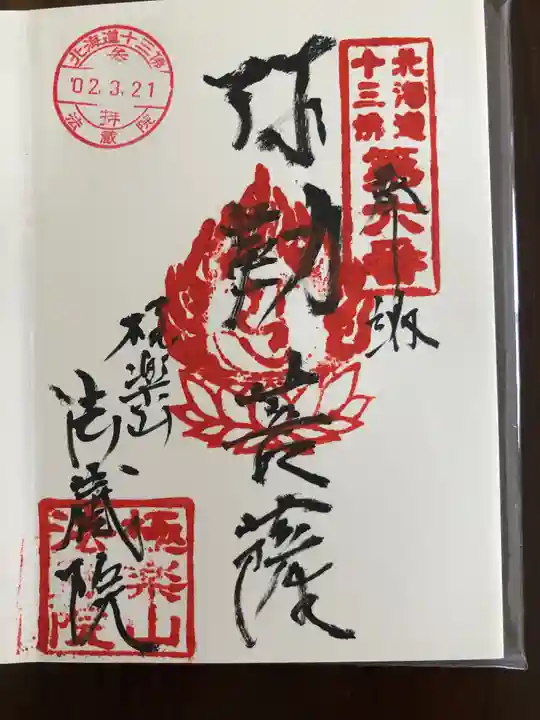 北海道
十三佛
第六番
奉拝
弥勒菩薩
極楽山
法蔵院
極楽山
法蔵院
北海道十三佛
参拝
'02.3.21
法蔵院